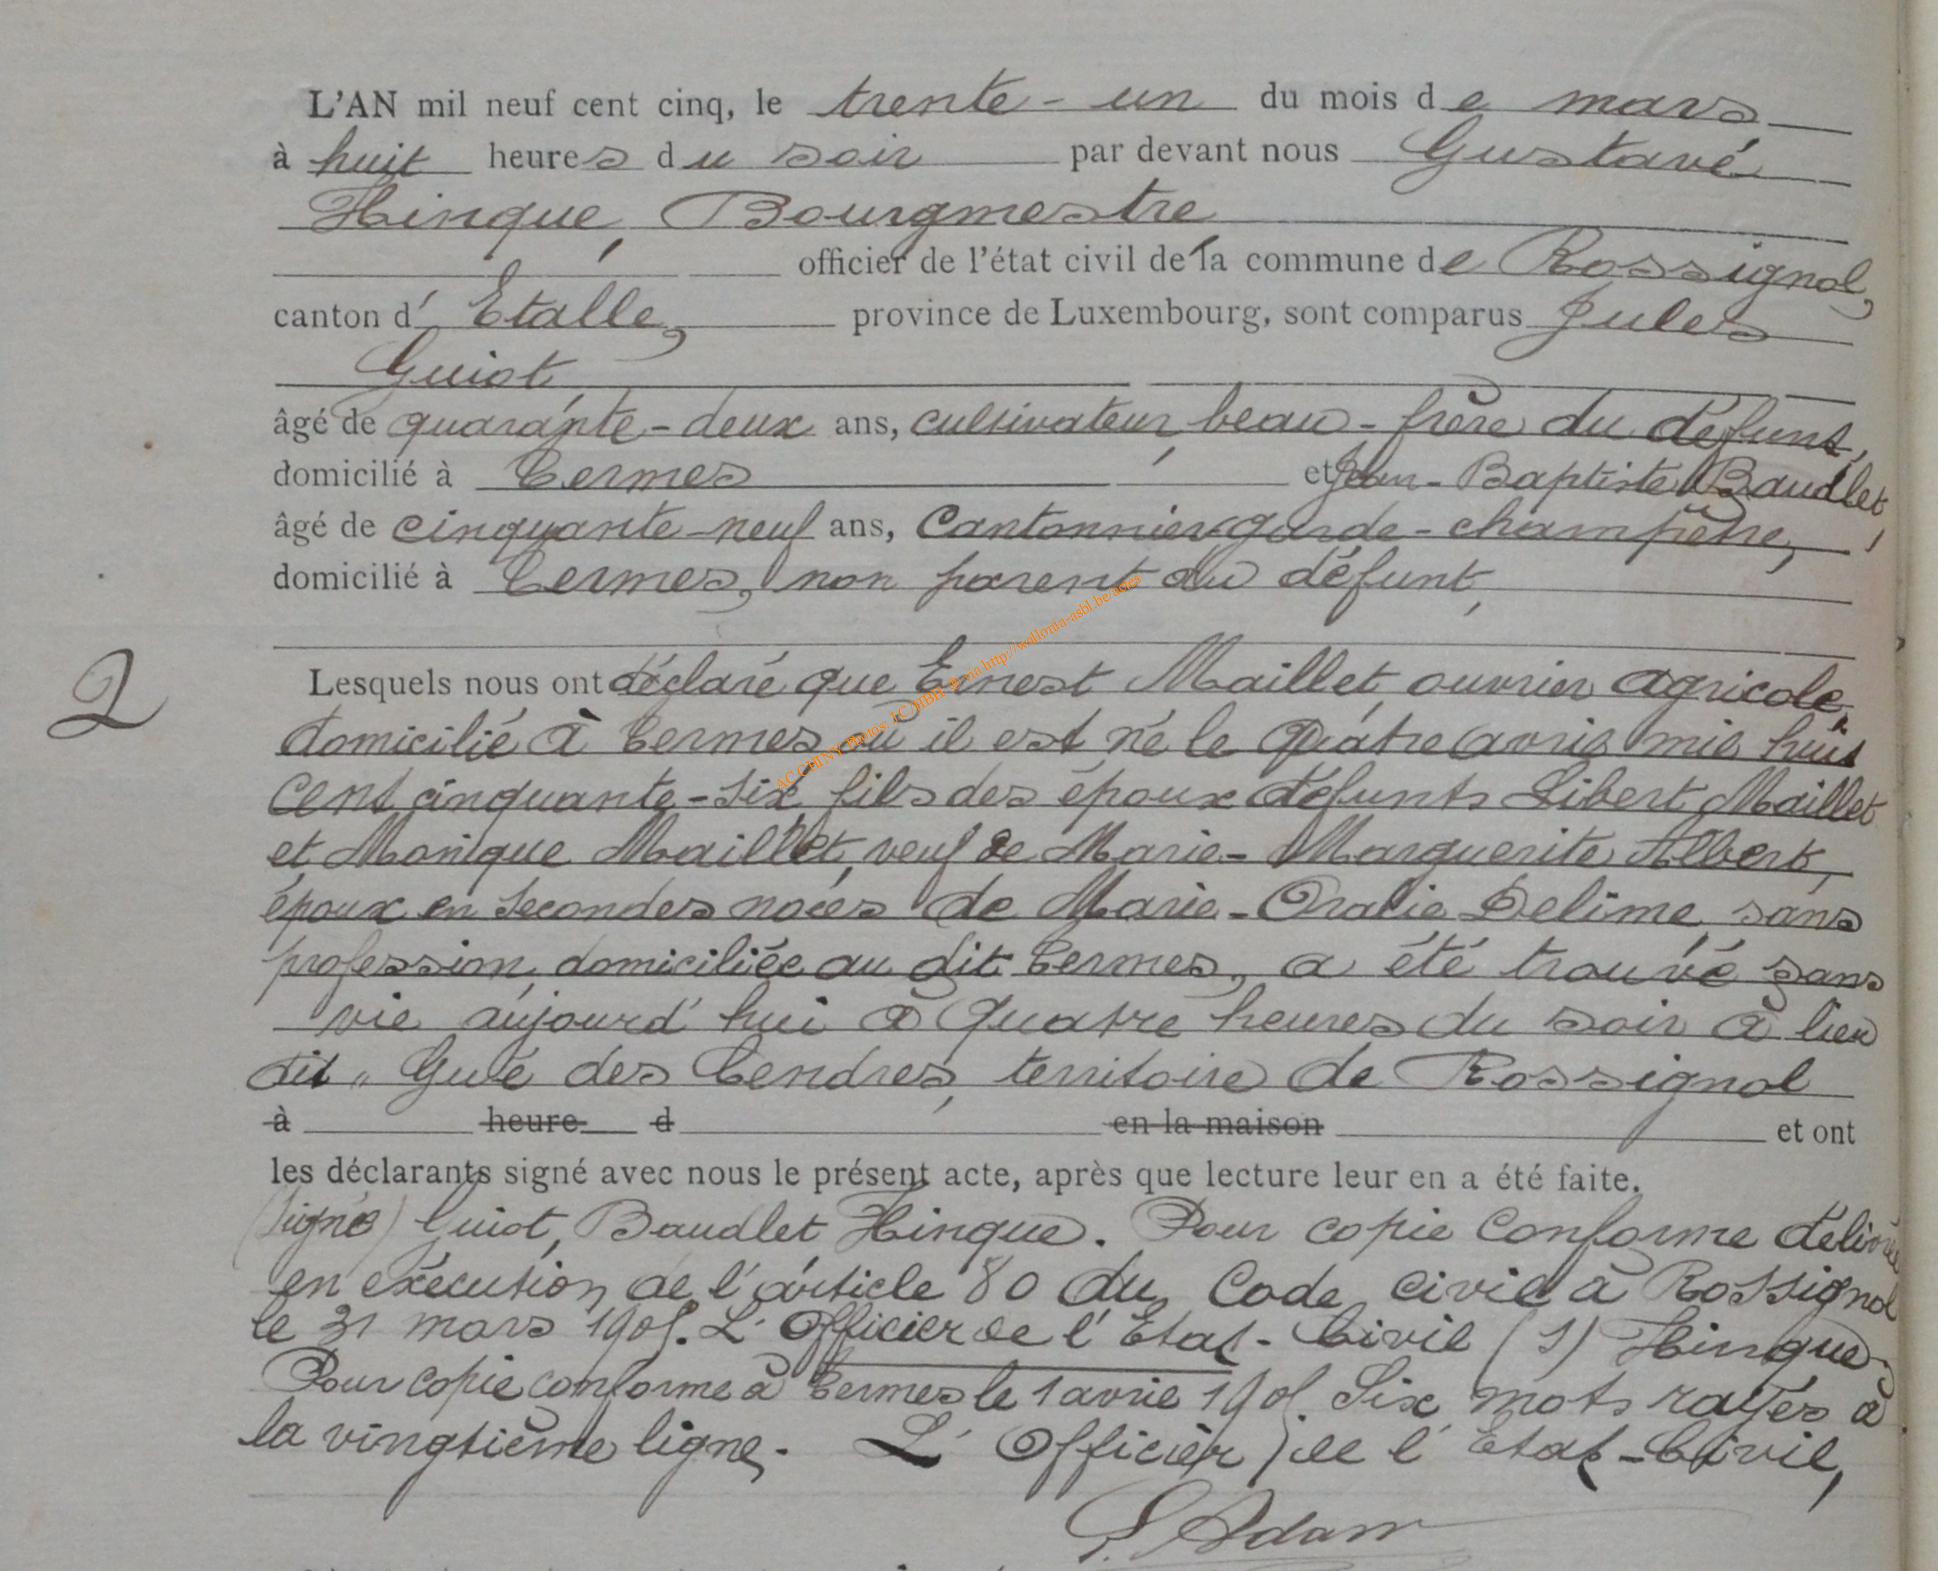 L'AN mil neuf cent cinq, le trente-un du mois de mars
à huit heures du soir par devant nous Gustave
Hinque, Bourgmestre
officier de l'état civil de la commune de Rossignol,
canton d'Etalle, province de Luxembourg, sont comparus Jules
Guiot,
âgé de quarante-deux ans, cultivateur, beau-frère du défunt,
domicilié à Termes et Jean-Baptiste Baudlet,
âgé de cinquante-neuf ans, Cantonnier garde-champêtre,
domicilié à Termes, non parent du défunt,
Lesquels nous ont déclaré que Ernest Maillet, ouvrier agricole,
2
domicilié à Termes où il est né le quatre avril mil huit
cent cinquante-six fils des époux défunts Libert Maillet
et Monique Maillet, veuf de Marie-Marguerite Albert,
époux en secondes noces de Marie-Oralie Delime, sans
profession, domiciliée au dit Termes, a été trouvé sans
vie aujourd'hui à quatre heures du soir à lieu
dit „ Gué des Cendres, territoire de Rossignol
à heure d en la maison et ont
les déclarants signé avec nous le présent acte, après que lecture leur en a été faite.
(Signé) Guiot, Baudlet Hinque. Pour copie conforme délivrée
en exécution de l'article 80 du Code civil à Rossignol
le 31 mars 1905. L'Officier de l'Etat-Civil (S) Hinque
Pour copie conforme à Termes le 1 avril 1905. Six mots rayés à
la vingtième ligne. L'Officier de l'Etat-Civil,
Adam
AC CHINY Photos: JC MBH © via http://wallonia-asbl.be/actes